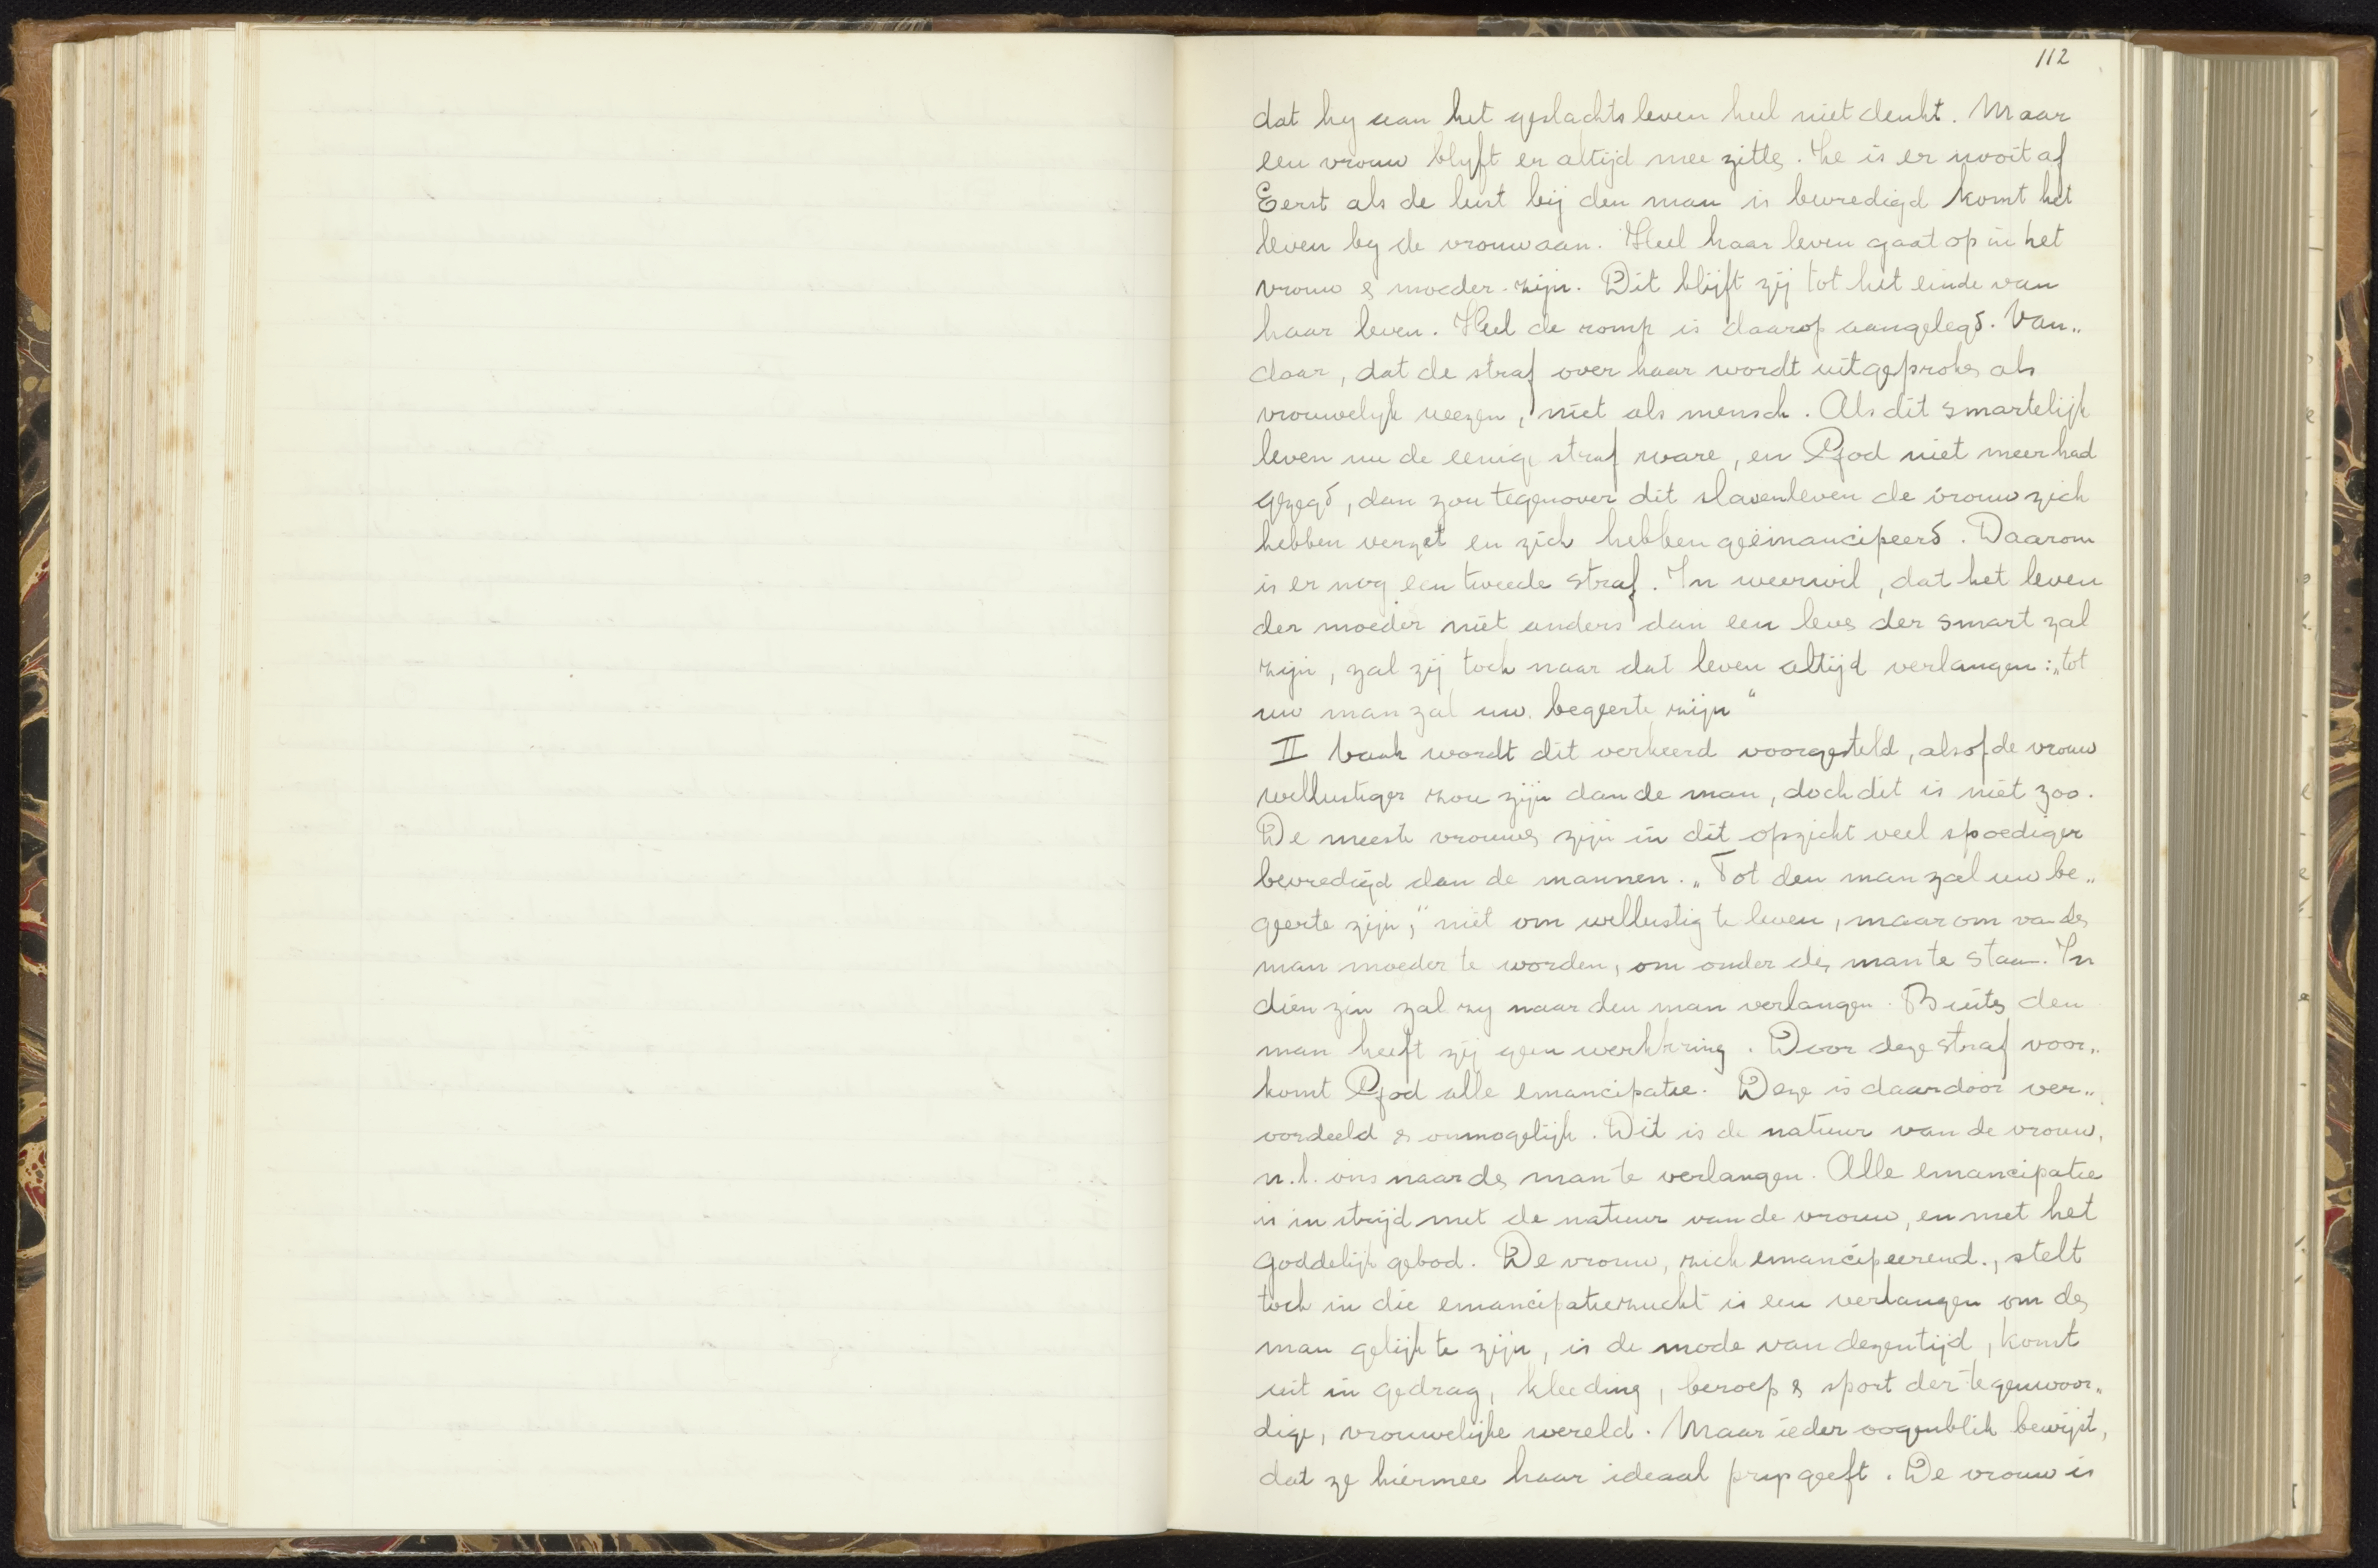 112
dat hy aan het geslachtsleven heel niet denkt. Maar
een vrouw blyft er altijd mee zitten. Ze is er nooit af
Eerst als de lust bij den man is bevredigd komt het
leven by de vrouw aan. Heel haar leven gaat op in het
vrouw & moeder-zijn. Dit blijft zij tot het einde van
haar leven. Heel de romp is daarop aangelegd. Van„
daar, dat de straf over haar wordt uitgesproken als
vrouwelyk weezen, niet als mensch. Als dit smartelijk
leven nu de eenige straf ware, en God niet meer had
gezegd, dan zou tegenover dit slavenleven de vrouw zich
hebben verzet en zich hebben geëmancipeerd. Daarom
is er nog een tweede straf. In weerwil, dat het leven
der moeder niet anders dan een leven der smart zal
zijn, zal zij toch naar dat leven altijd verlangen: „tot
uw man zal uw begeerte zijn“
II Vaak wordt dit verkeerd voorgesteld, alsof de vrouw
wellustiger zou zijn dan de man, doch dit is niet zoo.
De meeste vrouwen zijn in dit opzicht veel spoediger
bevredigd dan de mannen. „Tot den man zal uw be„
geerte zijn,“ niet om wellustig te leven, maar om van den
man moeder te worden, om onder den man te staan. In
dien zin zal zy naar den man verlangen. Buiten den
man heeft zij geen werkkring. Door deze straf voor„
komt God alle emancipatie. Deze is daardoor ver„
oordeeld & onmogelijk. Dit is de natuur van de vrouw,
n.l. om naar den man te verlangen. Alle emancipatie
is in strijd met de natuur van de vrouw, en met het
goddelijk gebod. De vrouw, zich emancipeerend., stelt
toch in die emancipatiezucht is een verlangen om den
man gelijk te zijn, is de mode van dezen tijd, komt
uit in gedrag, kleeding, beroep & sport der tegenwoor„
dige, vrouwelijke wereld. Maar ieder oogenblik bewijst,
dat ze hiermee haar ideaal prijs geeft. De vrouw is